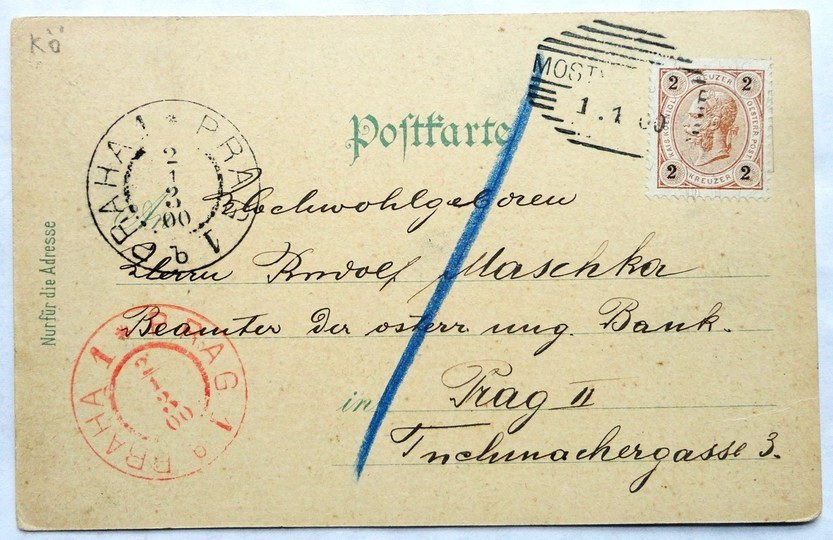 Kö
MOST
1.1 00
2 KREUZER 2
KAIS. KÖNIGL. OESTERR. POST.
2 KREUZER 2
Postkarte
PRAG 1
PRAHA 1
2
1
3
00
b
Hochwohlgeboren
Herrn Rudolf Maschka
Beamter der österr. ung. Bank.
in Prag II
Tuchmachergasse 3.
Nur für die Adresse
PRAG 1
PRAHA 1